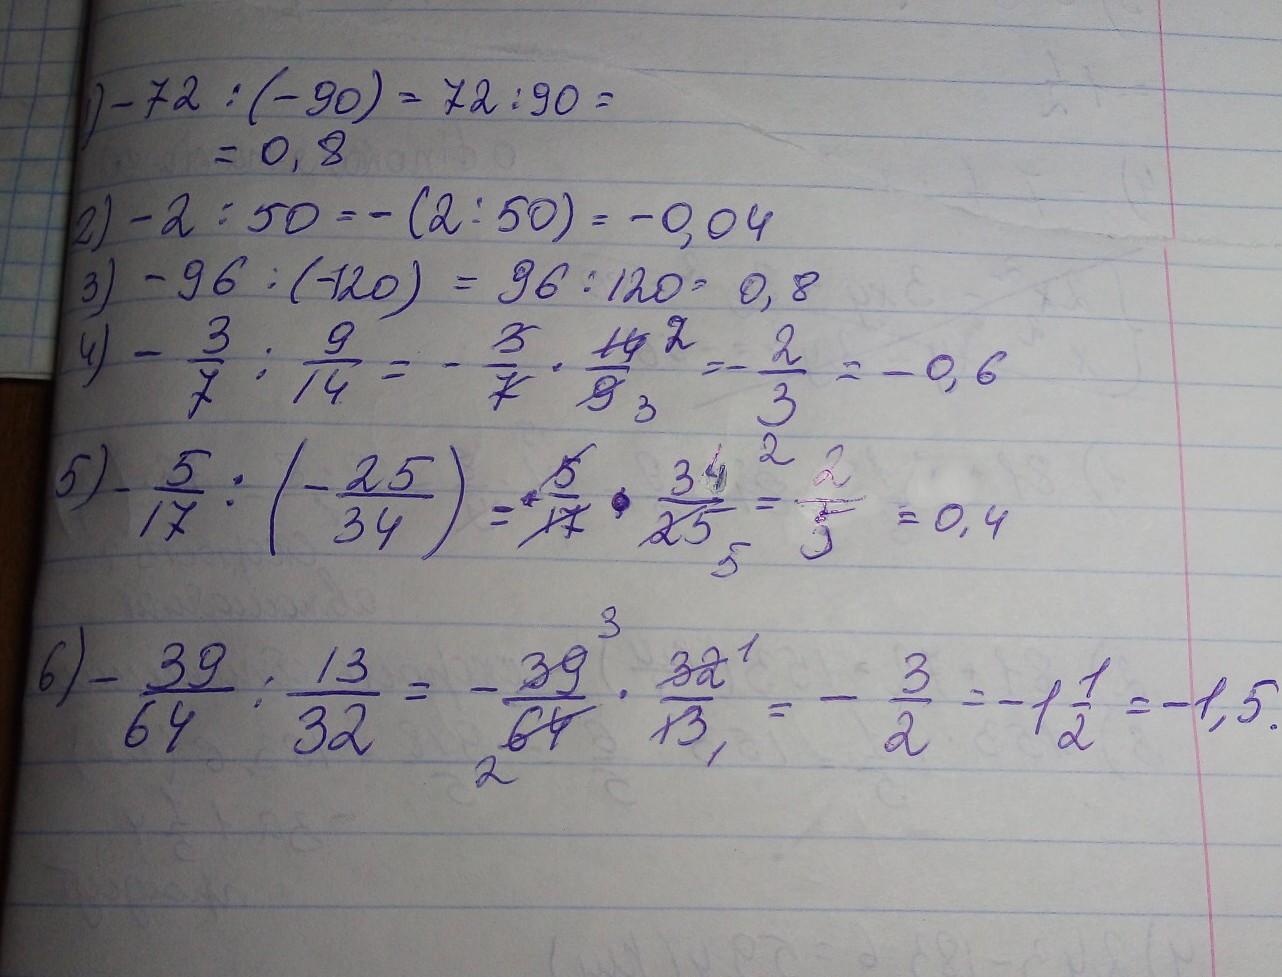 1) -72 : (-90) = 72 : 90 =
= 0,8
2) -2 : 50 = -(2 : 50) = -0,04
3) -96 : (-120) = 96 : 120 = 0,8
4) - 3/7 : 9/14 = - 3/7 · 14/9 2 3 = - 2/3 = -0,6
5) - 5/17 : (- 25/34) = 5/17 · 34/25 2 5 = 2/5 = 0,4
6) - 39/64 : 13/32 = - 39/64 3 2 · 32/13 1 1 = - 3/2 = -1 1/2 = -1,5.